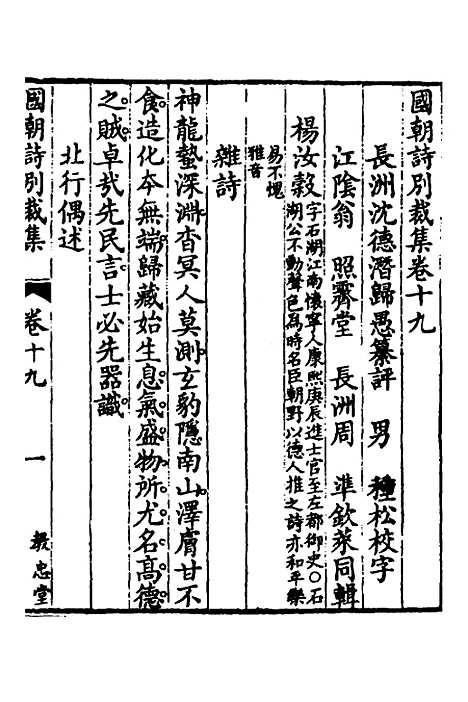 國朝詩別裁集卷十九
長洲沈德潛歸愚纂評　男　種松校字
江陰翁　照霽堂　長洲周　準欽萊同輯
楊汝穀字石湖江南懷寧人康熙庚辰進士官至左都御史○石
湖公不動聲色為時名臣朝野以德人推之詩亦和平樂
易不愧
雅音
雜詩
神龍蟄深淵杳冥人莫測玄豹隱南山澤膚甘不
食造化本無端歸藏始生息氣盛物所尤名高德
之賊卓哉先民言士必先器識
北行偶述
國朝詩別裁集　卷十九　一　教忠堂